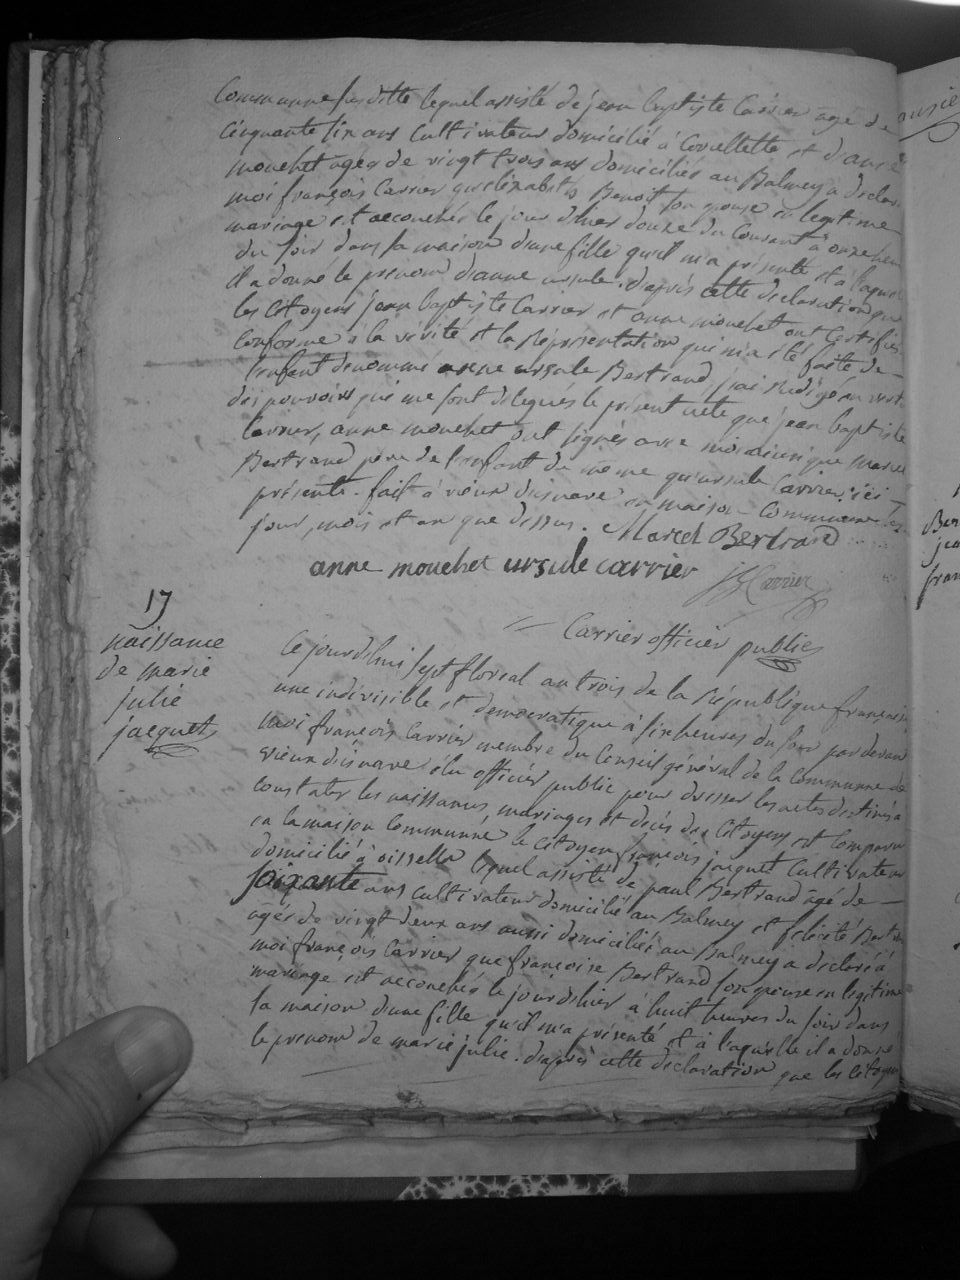 Communne susditte lequel assisté de jean baptiste Carrier âgé de
Cinquante six ans Cultivateur domicilié à Covellette et d'anne
mouchet agée de vingt trois ans domiciliée au Balmey a déclaré
moi françois Carrier qu'elizabeth Benoit son épouse en legitime
mariage est accouchée le jour d'hier douze du Courant à onze heures
du soir dans sa maison d'une fille qu'il m'a présenté et à laquelle
il a donné le prenom d'anne ursule. d'après cette declaration que
les Citoyens jean baptiste Carrier et anne mouchet ont Certifiés
Conforme à la vérité et la Représentation qui m'a été faite de
l'enfant denommé anne ursule Bertrand, j'ai Rédigé en vertu
des pouvoirs qui me sont delegués le présent acte que jean baptiste
Carrier, anne mouchet ont signés avec moi ainsi que marcel
Bertrand père de l'enfant de même qu'ursule Carrier ici
présente. fait à vieux d'isnave en maison Communne les
jour, mois et an que dessus. Marcel Bertrand
anne mouchet ursule carrier
JB Carrier
Carrier officier public
17
naissance
de marie
julie
jacquet
Ce jourd'hui sept floreal an trois de la République française
une indivisible et democratique à six heures du soir par devant
moi françois Carrier membre du Conseil général de la Communne de
vieux d'isnave élu officier public pour dresser les actes destinés à
Constater les naissances, mariages et decés des Citoyens est Comparu
en la maison Communne le Citoyen françois jacquet Cultivateur
domicilié à oissella lequel assisté de paul Bertrand âgé de
soixante ans Cultivateur domicilié au Balmey et felicité Bertrand
âgée de vingt deux ans aussi domiciliée au Balmey a declaré à
moi françois Carrier que françoise Bertrand son épouse en legitime
mariage est accouchée le jour d'hier à huit heures du soir dans
sa maison d'une fille qu'il m'a présenté et à laquelle il a donné
le prenom de marie julie. d'après cette declaration que les Citoyens